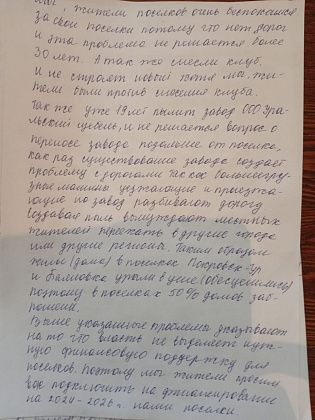 Мы, жители поселков очень беспокоимся
за свои поселки потому что нет дорог
и эта проблема не решается более
30 лет. А так же снесли клуб.
и не строят новый хотя мы, жи-
тели были против сношения клуба.
Так же уже 19 лет пылит завод ООО Ура-
льский щебень, и не решается вопрос о
переносе завода подальше от поселка,
как раз существование завода создает
проблему с дорогами так как большегру-
зные машины уезжающие и приезжа-
ющие по завод разбивают дорогу
создавая пыль вынуждают местных
жителей переехать в другие города
или другие регионы. Таким образом
жилье (дома) в поселках Покровск-Ур
и Беляковка упали в цене (обесценились)
поэтому в поселках 50% домов заб-
рошены.
Выше указанные проблемы указывают
на то что власть не выделяет нуж-
ную финансовую поддержку для
поселков. Поэтому мы жители просим
вас подключить на финансирование
на 2024-2026г. наши поселки